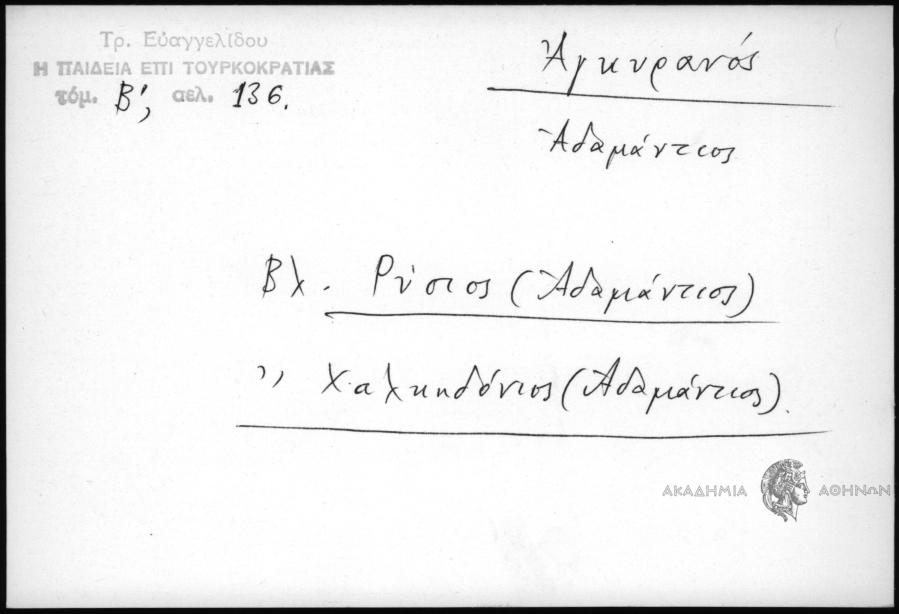 Τρ. Εὐαγγελίδου
Η ΠΑΙΔΕΙΑ ΕΠΙ ΤΟΥΡΚΟΚΡΑΤΙΑΣ
τόμ. Β', σελ. 136.
Ἀγκυρανός
Ἀδαμάντιος
Βλ. Ρύσιος (Ἀδαμάντιος)
,, Χαλκηδόνιος (Ἀδαμάντιος).
ΑΚΑΔΗΜΙΑ ΑΘΗΝΩΝ